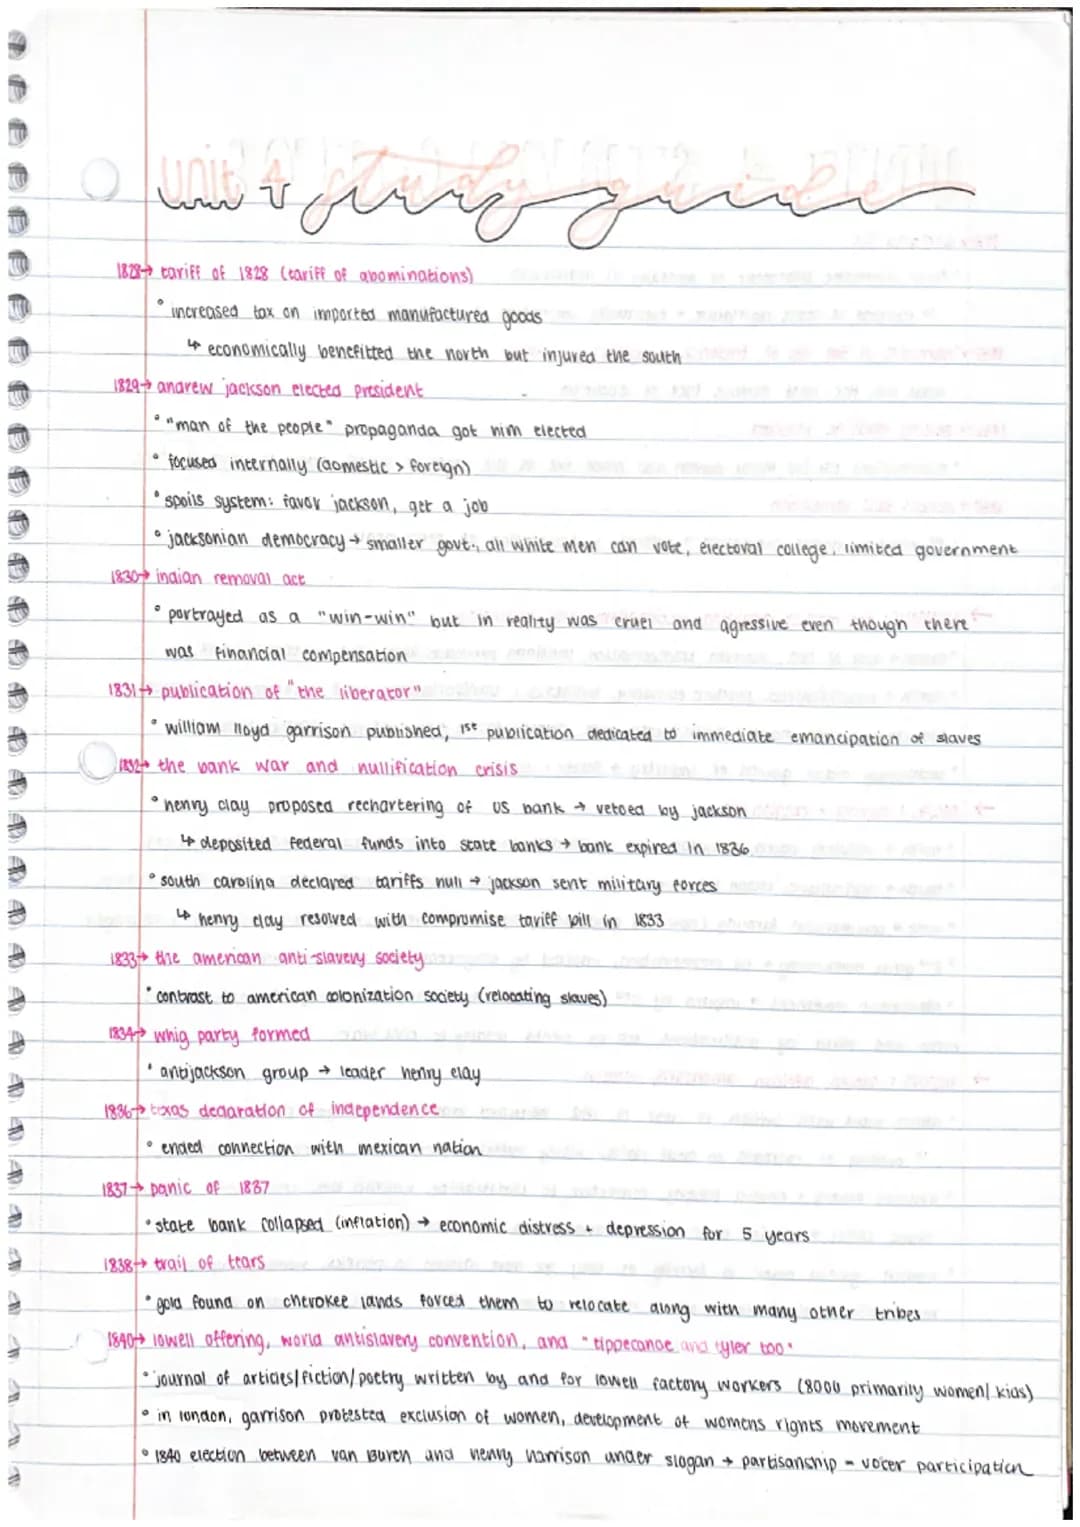 unit 4 study guide
1828→ tariff of 1828 (tariff of abominations)
° increased tax on imported manufactured goods
↳ economically benefitted the north but injured the south
1829→ andrew jackson elected president
° "man of the people" propaganda got him elected
° focused internally (domestic > foreign)
° spoils system: favor jackson, get a job
° jacksonian democracy → smaller govt., all white men can vote, electoral college, limited government
1830→ indian removal act
° portrayed as a "win-win" but in reality was cruel and agressive even though there
was financial compensation
1831→ publication of "the liberator"
° william lloyd garrison published, 1st publication dedicated to immediate emancipation of slaves
1832→ the bank war and nullification crisis
° henry clay proposed rechartering of US bank → vetoed by jackson
↳ deposited federal funds into state banks → bank expired in 1836
° south carolina declared tariffs null → jackson sent military forces
↳ henry clay resolved with compromise tariff bill in 1833
1833→ the american anti-slavery society
° contrast to american colonization society (relocating slaves)
1834→ whig party formed
° antijackson group → leader henry clay
1836→ texas declaration of independence
° ended connection with mexican nation
1837→ panic of 1837
° state bank collapsed (inflation) → economic distress + depression for 5 years
1838→ trail of tears
° gold found on cherokee lands forced them to relocate along with many other tribes
1840→ lowell offering, world antislavery convention, and "tippecanoe and tyler too"
° journal of articles/fiction/poetry written by and for lowell factory workers (8000 primarily women/kids)
° in london, garrison protested exclusion of women, development of womens rights movement
° 1840 election between van Buren and henry harrison under slogan → partisanship = voter participation